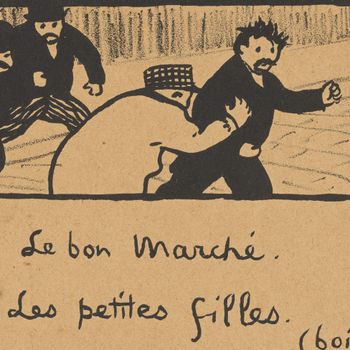 Le bon Marché.
Les petites filles.
(boi